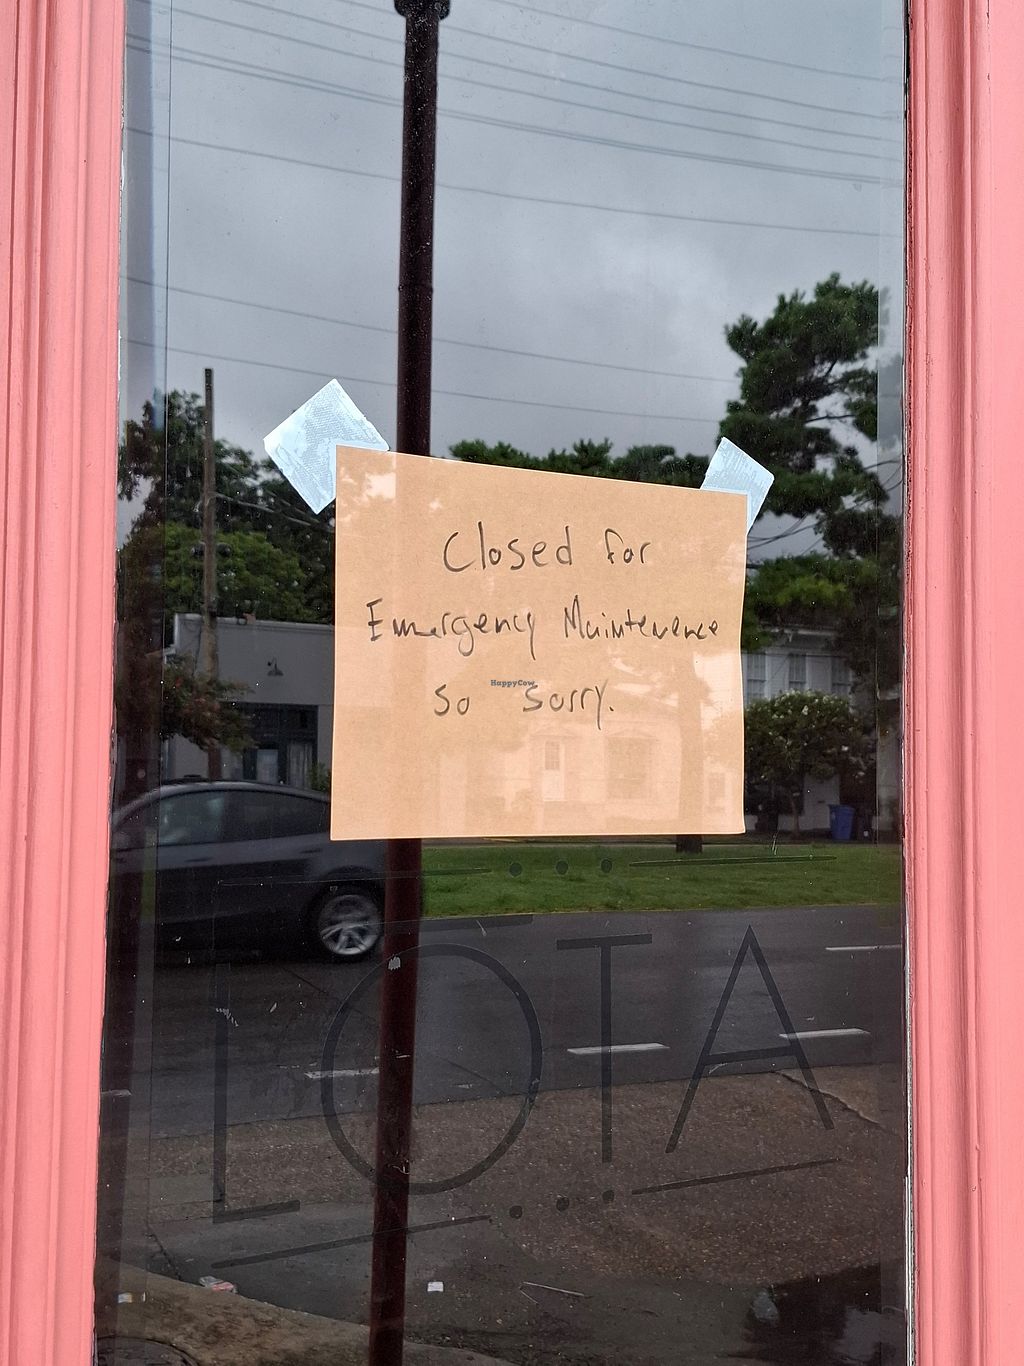 Closed for
Emergency Maintenence
so sorry.
HappyCow
LOTA